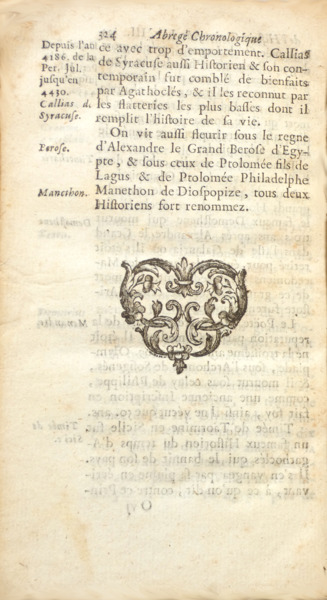 324 Abregé Chronologique
Depuis l'an
4186. de la
Per. Jul.
jusqu'en
4430.
Callias d.
Syracuse.
ce avec trop d'emportement. Callias
de Syracuse aussi Historien & son con-
temporain fut comblé de bienfaits
par Agathoclés, & il les reconnut par
les flatteries les plus basses dont il
remplit l'histoire de sa vie.
Berose.
On vit aussi fleurir sous le regne
d'Alexandre le Grand Berose d'Egy-
pte, & sous ceux de Ptolomée fils de
Lagus & de Ptolomée Philadelphe
Manethon.
Manethon de Diospopize, tous deux
Historiens fort renommez.